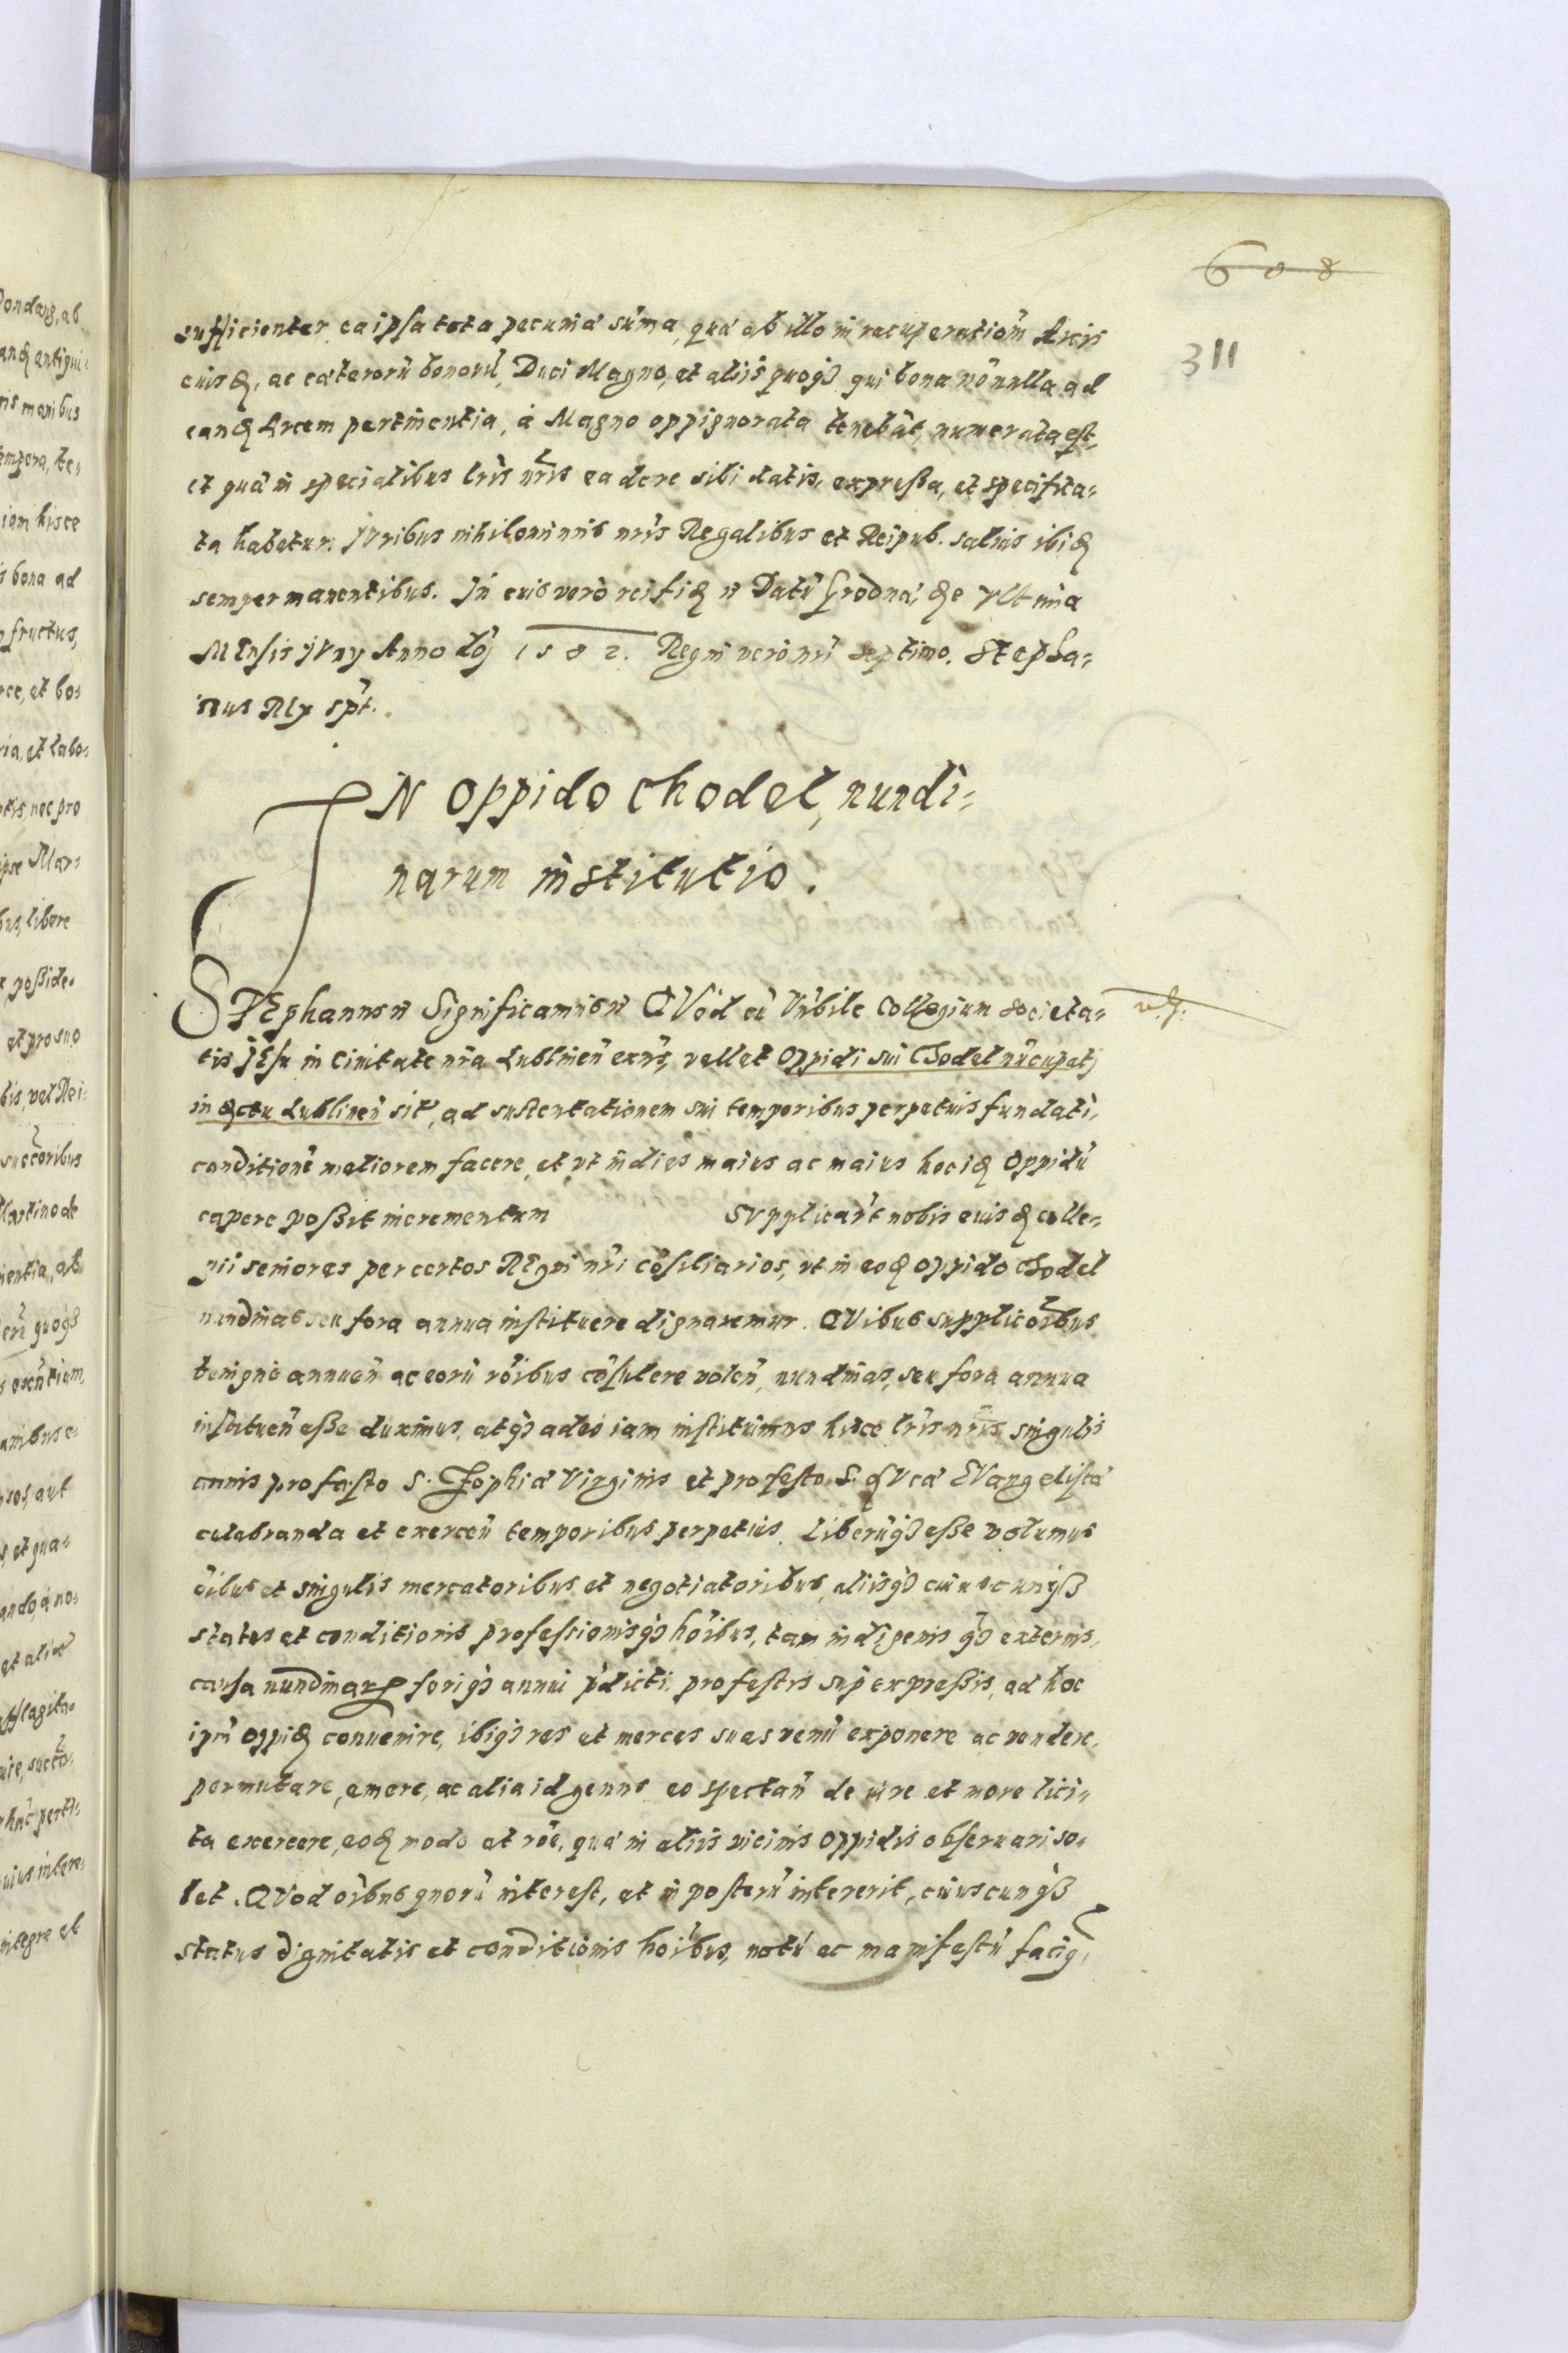 608
311
sufficienter ea ipsa tota pecuniae sūma, quae ab illo in recuperationē Arcis
eiusđ, ac caeterorū bonorū, Duci Magno, et aliis quoqȝ qui bona nōnulla ad
eanđ Arcem pertinentia, à Magno oppignorata tenebāt, numerata est,
et quae in specialibus lrīs nrīs ea de re sibi datis, expreßa, et specifica=
ta habetur. Juribus nihilominus nrīs Regalibus et Reipub. salvis ibiđ
semper manentibus. In cuius vero rei fiđ Datū Grodnae, đe Vltima
Mensis Juny Anno dōj 1582. Regni vero nrī septimo. Stepha=
nus Rex spt.
IN oppido Chodel, nundi=
narum institutio.
STEphanus Significamus QVod cū Vnbile Collegium societa=
tis JEsu in Civitate nrā Lublineñ exnš, vellet Oppidi sui Chodel nūcupatj
in đctu Lublineñ sit, ad sustentationem sui temporibus perpetuis fundati,
conditionē meliorem facere, et vt indies maius ac maius hoc iđ Oppidū
capere poßit incrementum supplicarūt nobis eiusđ colle=
gii seniores per certos REgni nrī cōsiliarios, vt in eođ oppido Chodel
nundinas seu fora annua instituere dignaremur. QVibus supplicōibus
benigne annueñ ac eorū rōibus cōsulere voleñ, nundinas, seu fora annua
institueñ eße duximus, atqȝ adeo iam instituimus hisce lrīs nrīs, singulis
annis pro festo S. Zophiae Virginis et pro festo S. LVcae EVangelistae
celebranda et exerceñ temporibus perpetuis. Liberūqȝ eße volumus
oibus et singulis mercatoribus et negotiatoribus, aliisqȝ cuiuscunqȝ
status et conditionis profeßionisqȝ hōibus, tam indigenis qȝ externis,
causa nundinarꝝ foriqȝ annui pdicti, pro festis sup expreßis, ad hoc
ipm̄ oppiđ convenire, ibiqȝ res et merces suas venū exponere ac vendere,
permutare, emere, ac alia id genus eo spectañ de iure et more lici=
ta exercere, eođ modo et rōe, quae in aliis vicinis oppidis observari so=
let. QVod oībus quorū interest, et in posterū intererit, cuiuscunqȝ
status dignitatis et conditionis hoībus, notū ac manifestū facīg,